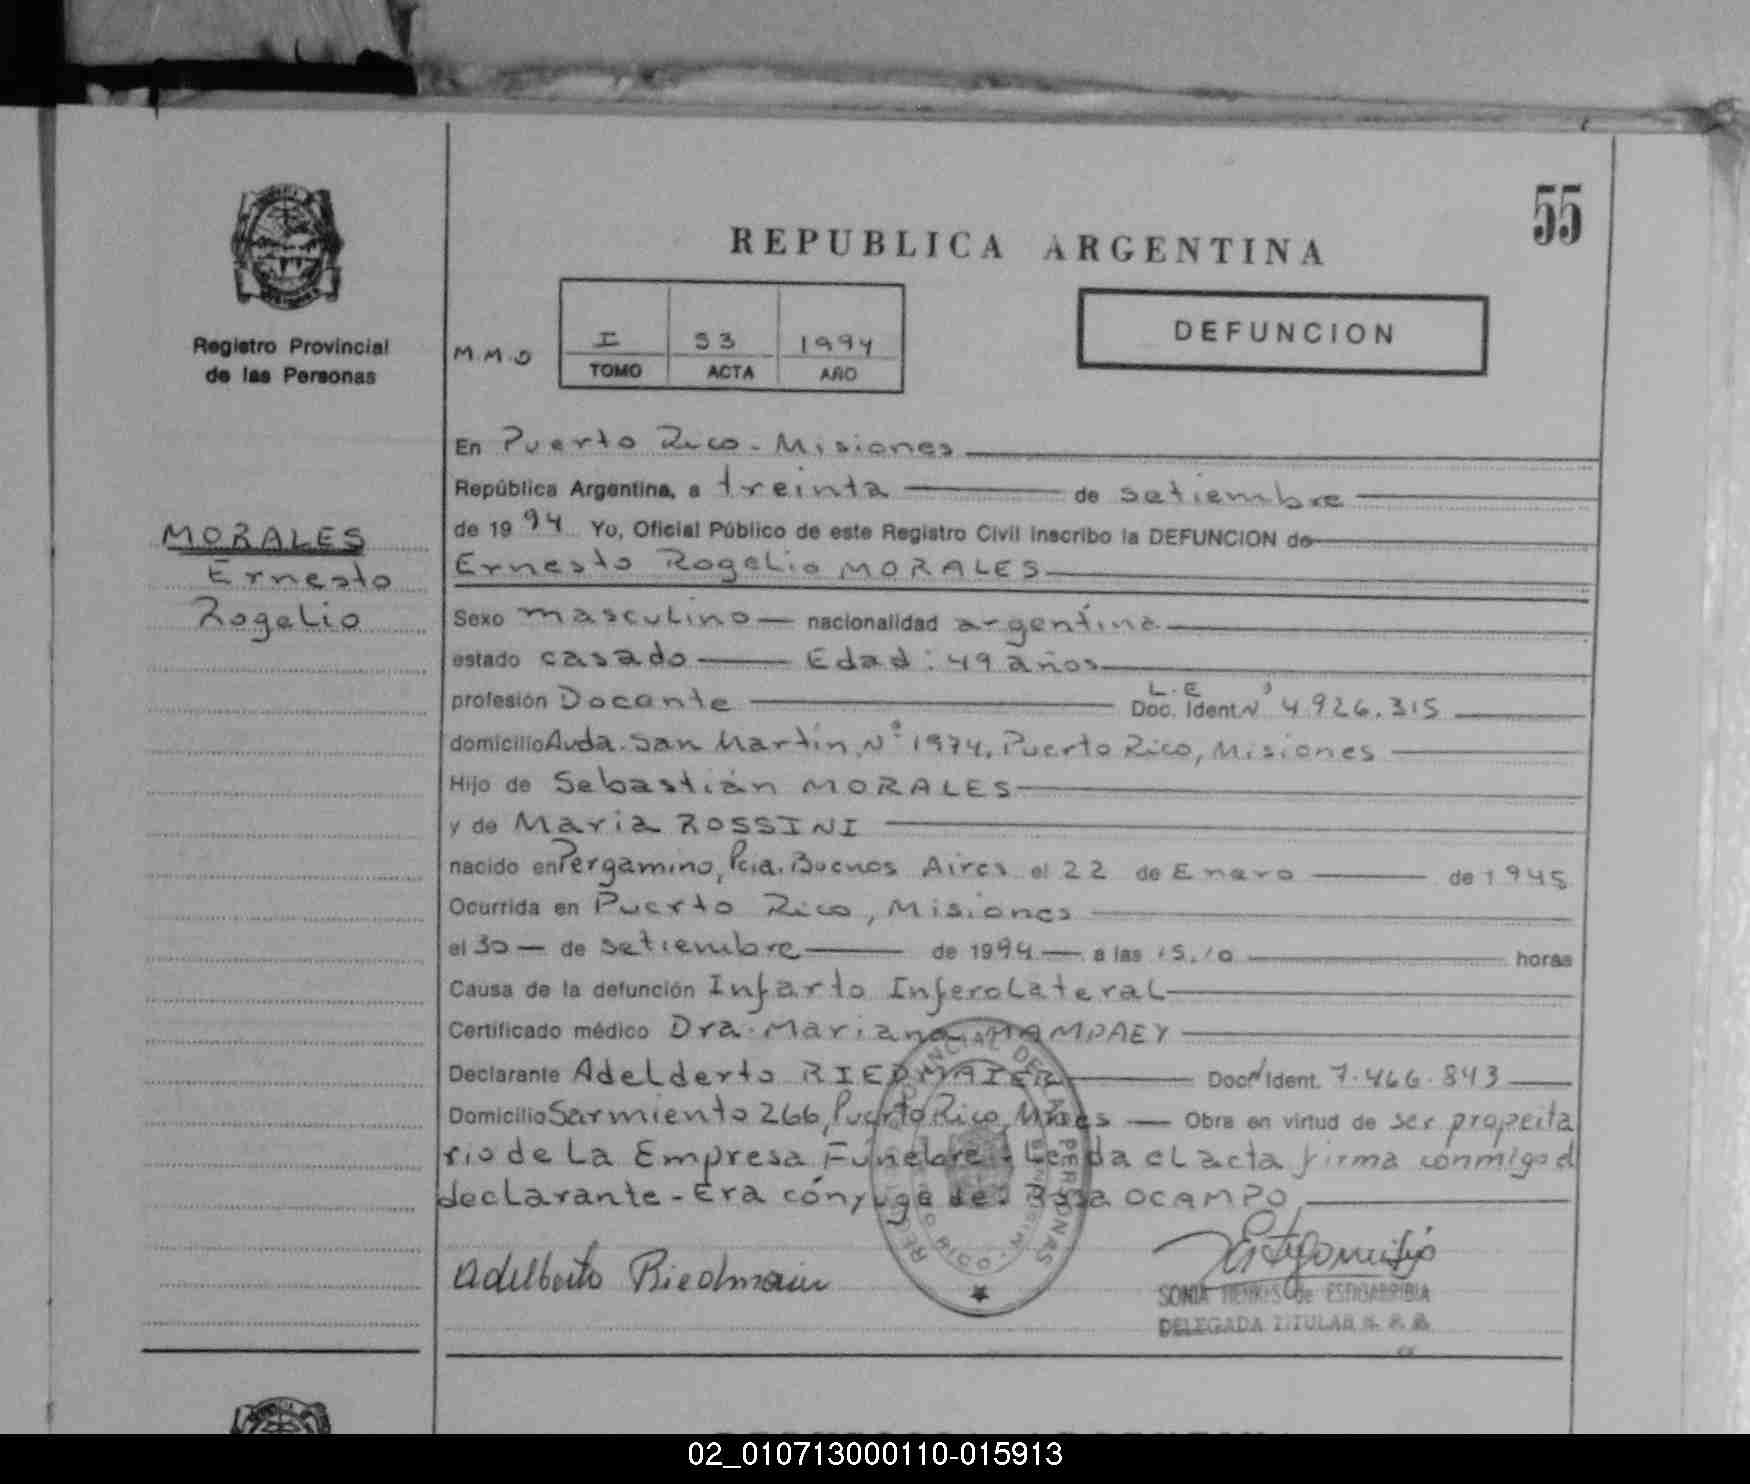 55
REPUBLICA ARGENTINA
Registro Provincial
de las Personas
M.M.O
I 53 1994
TOMO ACTA AÑO
DEFUNCION
MORALES
Ernesto
Rogelio
En Puerto Rico - Misiones
República Argentina, a treinta de setiembre
de 1994 Yo, Oficial Público de este Registro Civil inscribo la DEFUNCION de
Ernesto Rogelio MORALES
Sexo masculino nacionalidad argentina
estado casado Edad: 49 años
L.E
profesión Docente Doc. Ident. Nº 4.926.315
domicilio Avda. San Martín, Nº 1974, Puerto Rico, Misiones
Hijo de Sebastián MORALES
y de Maria ROSSINI
nacido en Pergamino, Pcia. Buenos Aires el 22 de Enero de 1945
Ocurrida en Puerto Rico, Misiones
el 30 de setiembre de 1994 a las 15.10 horas
Causa de la defunción Infarto Inferolateral
Certificado médico Dra. Mariana MAMPAEY
Declarante Adelderto RIEDMAIER Doc. Ident. 7.466.843
Domicilio Sarmiento 266, Puerto Rico, Mnes Obra en virtud de ser propeita
rio de La Empresa Fúnebre - Leída el acta firma conmigo el
declarante - Era cónyuge de: Rosa OCAMPO
Adelberto Riedmaier
SONIA de ESTIGARRIBIA
DELEGADA TITULAR R. P. P.
02_010713000110-015913